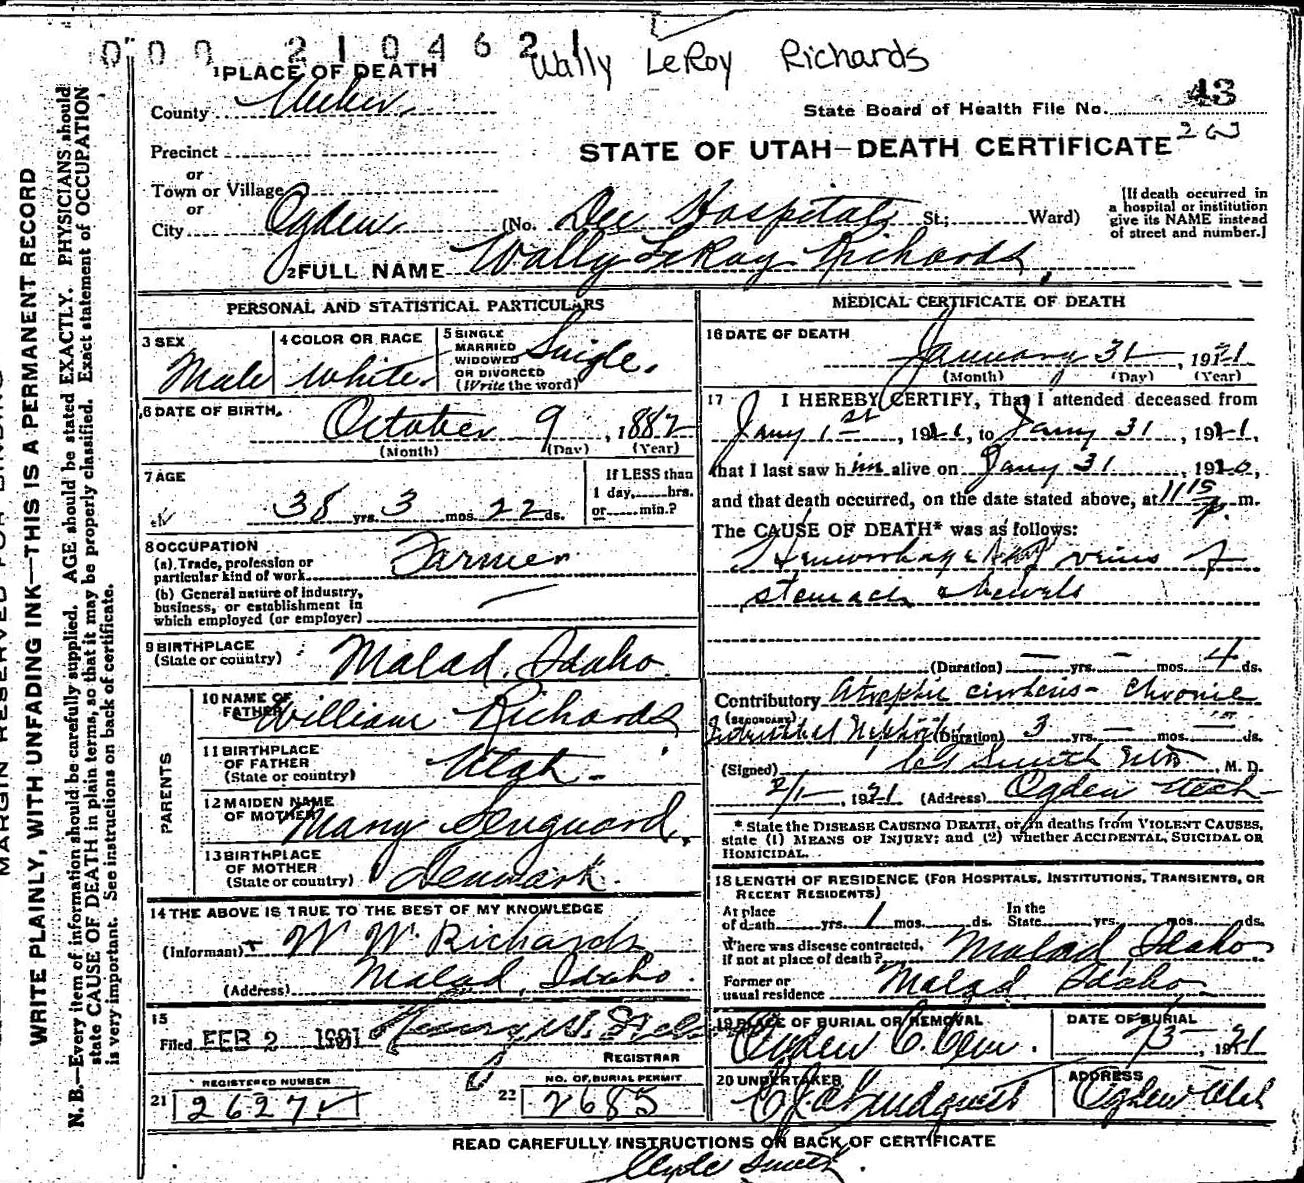 000 210462 1
Wally LeRoy Richards
1 PLACE OF DEATH
County Weber
State Board of Health File No. 43
Precinct
STATE OF UTAH—DEATH CERTIFICATE
or
Town or Village
or
City Ogden (No. Dee Hospital St; Ward)
[If death occurred in
a hospital or institution
give its NAME instead
of street and number.]
2 FULL NAME Wally LeRoy Richards
PERSONAL AND STATISTICAL PARTICULARS
3 SEX
Male
4 COLOR OR RACE
White
5 SINGLE
MARRIED
WIDOWED
OR DIVORCED
(Write the word)
Single.
6 DATE OF BIRTH.
October 9, 1882
(Month) (Day) (Year)
7 AGE
38 yrs. 3 mos. 22 ds.
If LESS than
1 day, hrs.
or min.?
8 OCCUPATION
(a) Trade, profession or
particular kind of work Farmer
(b) General nature of industry,
business, or establishment in
which employed (or employer)
9 BIRTHPLACE
(State or country) Malad, Idaho
PARENTS
10 NAME OF
FATHER William Richards
11 BIRTHPLACE
OF FATHER
(State or country) Utah
12 MAIDEN NAME
OF MOTHER Mary
13 BIRTHPLACE
OF MOTHER
(State or country) Denmark.
14 THE ABOVE IS TRUE TO THE BEST OF MY KNOWLEDGE
(Informant) W W Richards
(Address) Malad, Idaho.
15
Filed FEB 2 Henry W.
REGISTRAR
REGISTERED NUMBER
21 26272
NO. OF BURIAL PERMIT
22 2685
MEDICAL CERTIFICATE OF DEATH
16 DATE OF DEATH
January 31, 1921
(Month) (Day) (Year)
17 I HEREBY CERTIFY, That I attended deceased from
Jany 1st, 1921, to Jany 31, 1921,
that I last saw him alive on Jany 31, 19
and that death occurred, on the date stated above, at 11 15 P. m.
The CAUSE OF DEATH* was as follows:
Hemorrhage veins of
stomach & bowels
(Duration) — yrs. — mos. 4 ds.
Contributory Atrophic cirrhosis - Chronic
(SECONDARY)
(Duration) 3 yrs. — mos. — ds.
(Signed) Smith M. D.
2/1, 1921 (Address) Ogden Utah
* State the DISEASE CAUSING DEATH, or, in deaths from VIOLENT CAUSES,
state (1) MEANS OF INJURY; and (2) whether ACCIDENTAL, SUICIDAL OR
HOMICIDAL.
18 LENGTH OF RESIDENCE (FOR HOSPITALS, INSTITUTIONS, TRANSIENTS, OR
RECENT RESIDENTS)
At place
of death yrs. 1 mos. ds. In the
State yrs. mos. ds.
Where was disease contracted,
if not at place of death? Malad Idaho
Former or
usual residence Malad, Idaho
19 PLACE OF BURIAL OR REMOVAL
Ogden C. Cem.
DATE OF BURIAL
2/3, 1921
20 UNDERTAKER
ADDRESS
Ogden Utah
READ CAREFULLY INSTRUCTIONS ON BACK OF CERTIFICATE
Clyde Smith.
WRITE PLAINLY, WITH UNFADING INK—THIS IS A PERMANENT RECORD
N. B.—Every item of information should be carefully supplied. AGE should be stated EXACTLY. PHYSICIANS should
state CAUSE OF DEATH in plain terms, so that it may be properly classified. Exact statement of OCCUPATION
is very important. See instructions on back of certificate.